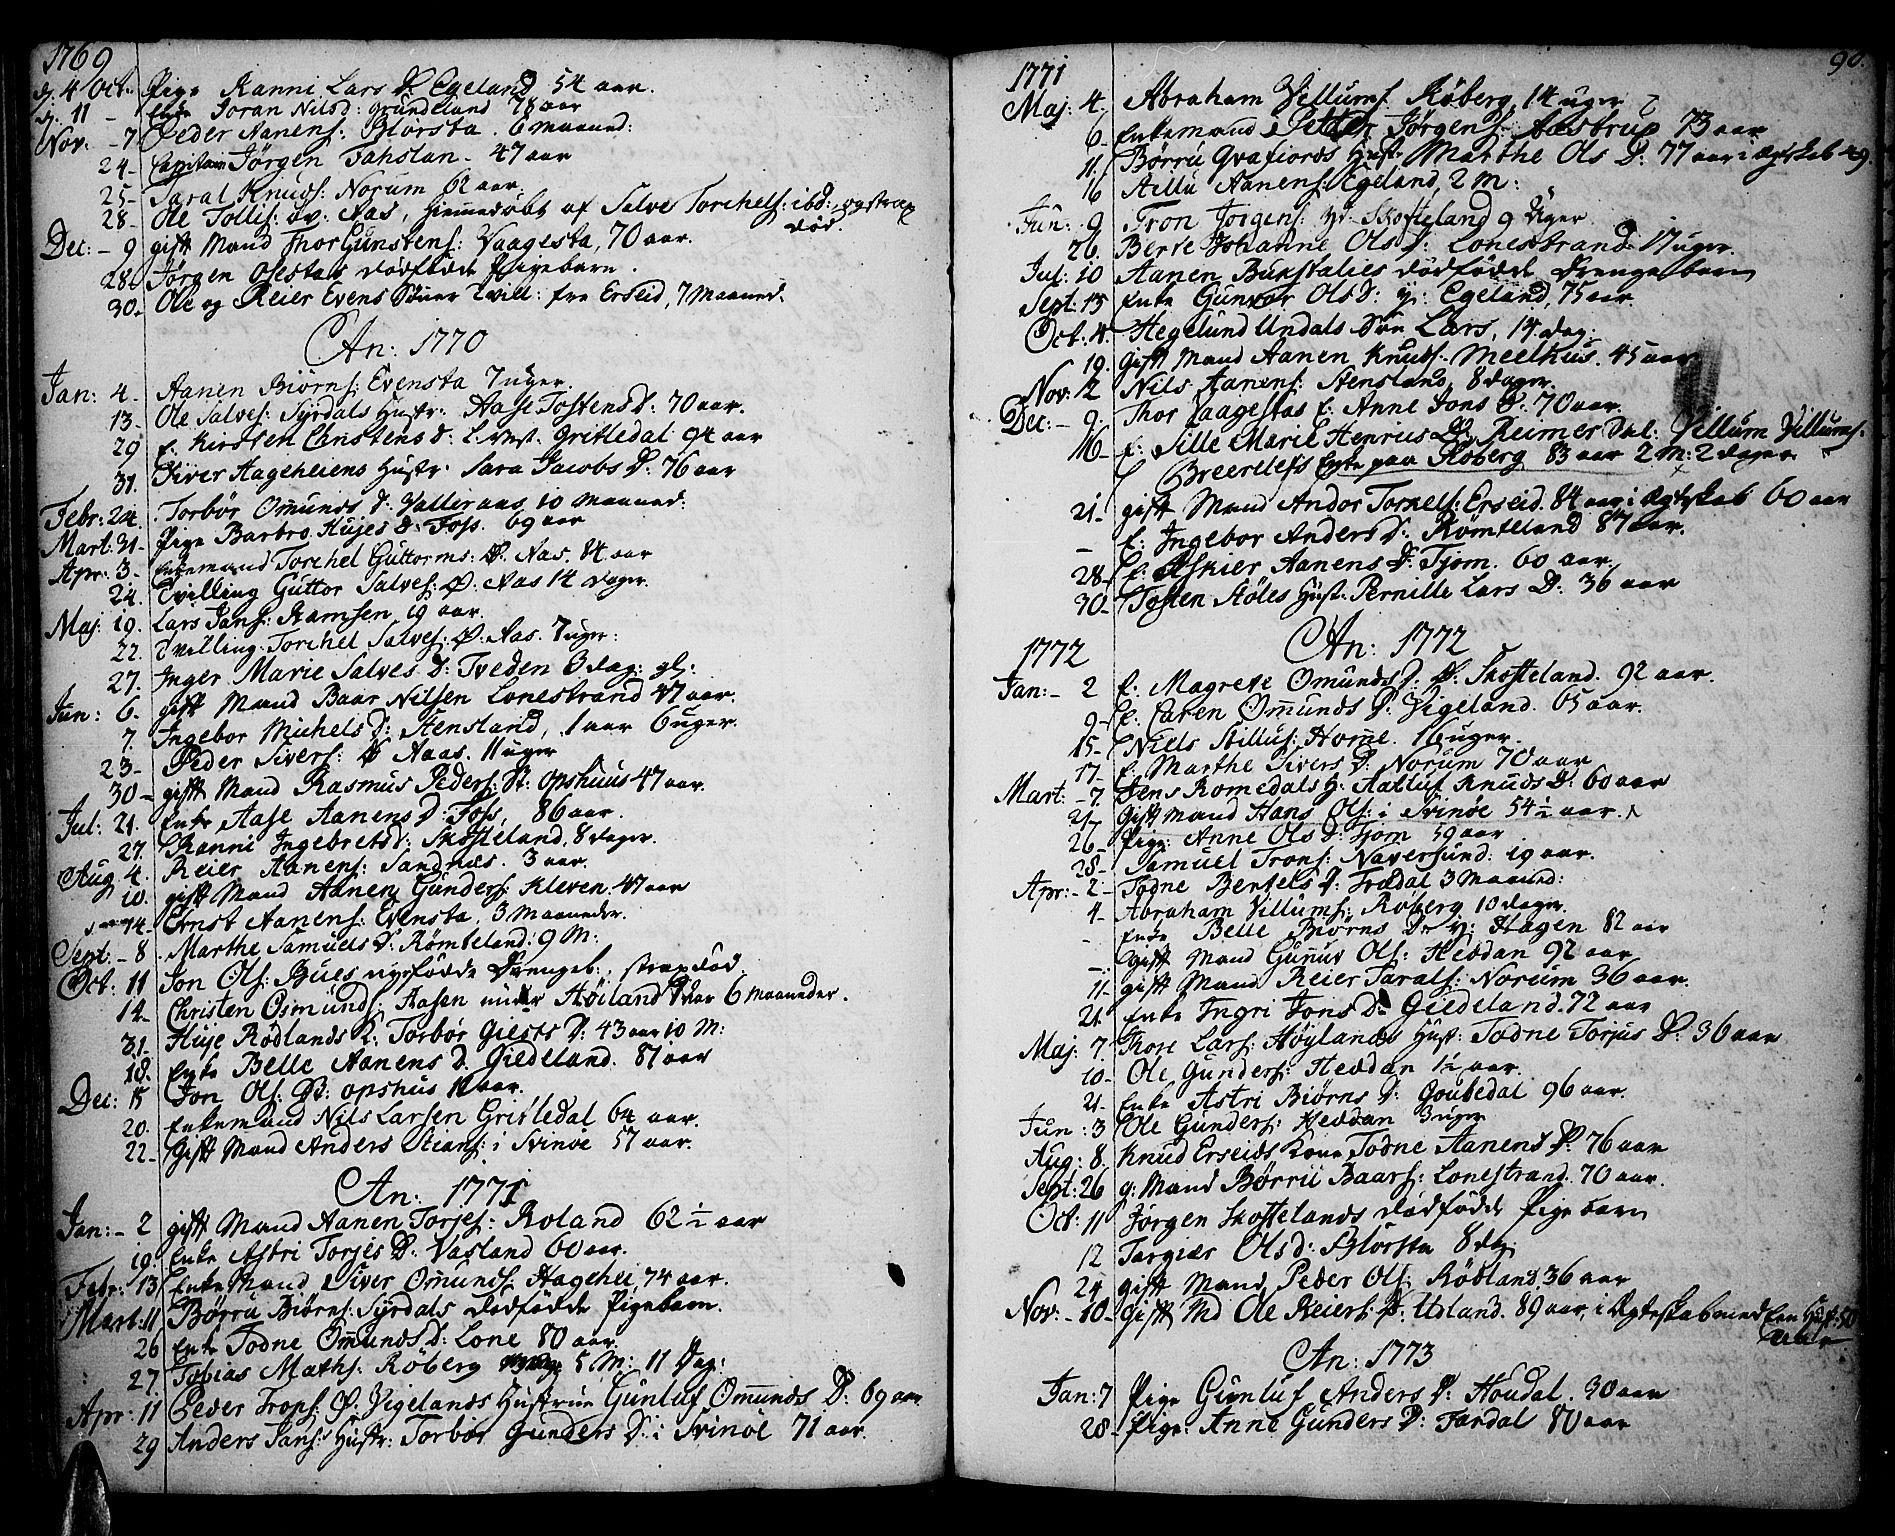 1769
d. 4 Oct: Pige Ranni Lars D. Egeland 54 aar.
d. 11 - Enke Joran Nilsd: Grundeland 78 aar
Nov: - 7 Peder Aanens: Blorsta. 6 maaned:
24 - Capitain Jörgen Fahslan - 47 aar
25 - Taral Knuds: Norum 62 aar.
28 - Ole Tollis: öv: Aas, hiemmedöbt af Salve Torchels: ibd: og strax
död.
Dec: - 9 gift Mand Thor Gunstens: Vaagesta, 70 aar.
28. Jörgen Ofestads dödfödde Pigebarn.
30. Ole og Reier Evens Sönner tvill: fra Erseid, 7 Maaned.
An: 1770
Jan: 4. Aanen Biörns: Evensta 7 uger.
13. Ole Salves: Syrdals Hustr: Aase Tostensd: 70 aar.
29 E. Kirsten Christens d: Gritledal 94 aar
31. Siver Hageheiens Hustr. Sara Jacobs D: 76 aar
Febr: 24. Torbör Omunds D. Valleraas 10 Maaned:
Mart. 31 - Pige Barbro Hujes D: Foss. 69 aar
Apr: 3 - Enkemand Torchel Guttorms: Ö. Aas. 84 aar
24. Tvilling Guttor Salves: Ö. Aas 14 dager.
Maj 19. Lars Jans: Ramsen 19 aar.
22. Tvilling Torchel Salves: Ö: Aas. 7 uger:
27. Inger Marie Salves D: Tveden 3 dag: gl:
Jun: 6. gift Mand Baar Nilsen Lonestrand 47 aar.
7. Ingebor Michels D: Stensland, 1 aar 6 uger.
23 - Peder Sivers: Aaas. 11 uger
30 - gift Mand Rasmus Peders: St: Opshuus 47 aar.
Jul: 21. Enke Aase Aanens D. Foss, 86 aar.
27. Ranni Ingebretsd: Skofteland, 8 dager.
Aug 4. Reier Aanens: Sandnæs. 3 aar.
10. gift Mand Aanen Gunders: Kleven 47 aar
14 - Ernst Aanens: Evensta, 3 Maaneder.
Sept: - 8. Marthe Samuels D: Römteland: 9 M:
Oct: 11 Jon Ols: Bues nyefödde Drengeb:, strax död.
14 - Christen Osmunds: Aasen under Höiland 1 aar 6 maaneder.
31 - Huje Rödlands K: Torbör Giests D: 43 aar 10 M:
18. Enke Belle Aanens D. Giedeland. 87 aar
Dec: 15 Jon Ols: opshus 11 aar.
20. Enkemand Nils Larsen Gritledal 64 aar.
22 - Gift Mand Anders Stians: i Svinöe 57 aar.
An: 1771
Jan: - 2 gift Mand Aanen Torjes: Roland 62 ½ aar
19. Enke Astri Torjes D: Vasland 60 aar.
Febr: 13 Enke Mand Siver Omunds: Hagehei, 74 aar.
Mart: 11 Börru Biörns: Syrdals dödfödde Pigebarn.
26 Enke Todne Omunds D: Lone 80 aar
27. Tobias Maths: Röberg 5 M: 11 Dag:
Apr: 11 Peder Trons: Ö. Vigelands Hustrue Gunluf Omunds D: 69 aar
29 Anders Jans: Hustr: Torbör Gunders D: i Svinöe 71 aar.
90.
1771
Maj: 4. Abraham Villums: Röberg 14 uger
6 - Enkemand Petter Jörgens: Aastrup 73 aar
11. Börru Qvafiords Hust: Marthe Ols D: 77 aar i ægteskab 49.
16 Aillu Aanens: Egeland, 2 M:
Jun: 9 Tron Jörgens: yt: Skofteland 9 uger
26. Berte Johanne Ols D: Lonestrand 17 uger.
Jul: 10 Aanen Bukstalies dödfödde Drenge barn
Sept. 15 Enke Gunvor Ols D: y: Egeland, 75 aar.
Oct: 4. Hegelund Undals Sön Lars, 14 dag:
19. Gift Mand Aanen Knuds: Meelhus. 45 aar
Nov: 2 Nils Aanens: Stensland, 8 dager.
Dec: - 9. Thor Vaagestas E. Anne Jons D. 70 aar.
16 - E: Sille Marie Henrics D. Reimer Sal: Villum Villums:
Breerders Enke paa Röberg 83 aar 2 M: 2 dager
21 - gift Mand Andor Tornels: Erseid. 84 aar i Ægteskab 60 aar
- E: Ingebor Anders D: Römteland 87 aar.
28 E: Askier Aanens D: Tjom. 60 aar.
30 - Tosten Stöles Hust: Pernille Lars D: 36 aar
1772 An: 1772
Jan: - 2 E. Magrete Omunds D. Ö. Skofteland. 92 aar.
9 - E: Caren Omunds D: Vigeland. 65 aar.
15 - Niels Stillufs: Horne. 16 uger.
17 - E: Marthe Sivers D: Norum 70 aar
Mart: - 7. Jens Romedals H: Aalluf Knuds D: 60 aar
21. Gift Mand Hans Ols: i Svinöe 54 ½ aar.
26 - Pige: Anne Ols D: Tjom 59 aar
28 - Samuel Trons: Naversund: 19 aar.
Apr: - 2 - Todne Bentels D: Trædal 3 Maaned:
4 - Abraham Villums: Röberg 10 dager.
- Enke Belle Biörns D: y: Hagen 82 aar
- Gift Mand Gunuv Ols: Heddan 92 aar
11 - gift Mand Reier Tarals: Norum 36 aar.
21. Enke Ingri Jons D: Giedeland. 72 aar
Maj: 7. Thore Lars: Höylands Hust: Todne Torjus D: 36 aar
10 - Ole Gunders: Heddan 1½ aar.
21 - Enke Astri Biörns D: Goubedal 96 aar.
Jun: 3 Ole Gunders: Heddan 3 uger
Aug: 8. Knud Erseids Kone Todne Aanens D: 76 aar
Sept: 26 g: Mand Börru Baars: Lonestrand. 70 aar.
Oct: 11 Jörgen Skoftelands dödfödde Pige barn
12 Targiær Ols D: Blörsta 8 dag:
24 gift Mand Peder Ols: Rödland 36 aar
Nov: - 10 - Gift Md Ole Reiers: Ö. Udland. 89 aar, i Ægteskab med Een Hust: 50
aar
An: 1773
Jan: 7 Pige Gunluf Anders D: Houdal. 30 aar
28 - Pige: Anne Gunders D: Fardal 80 aar